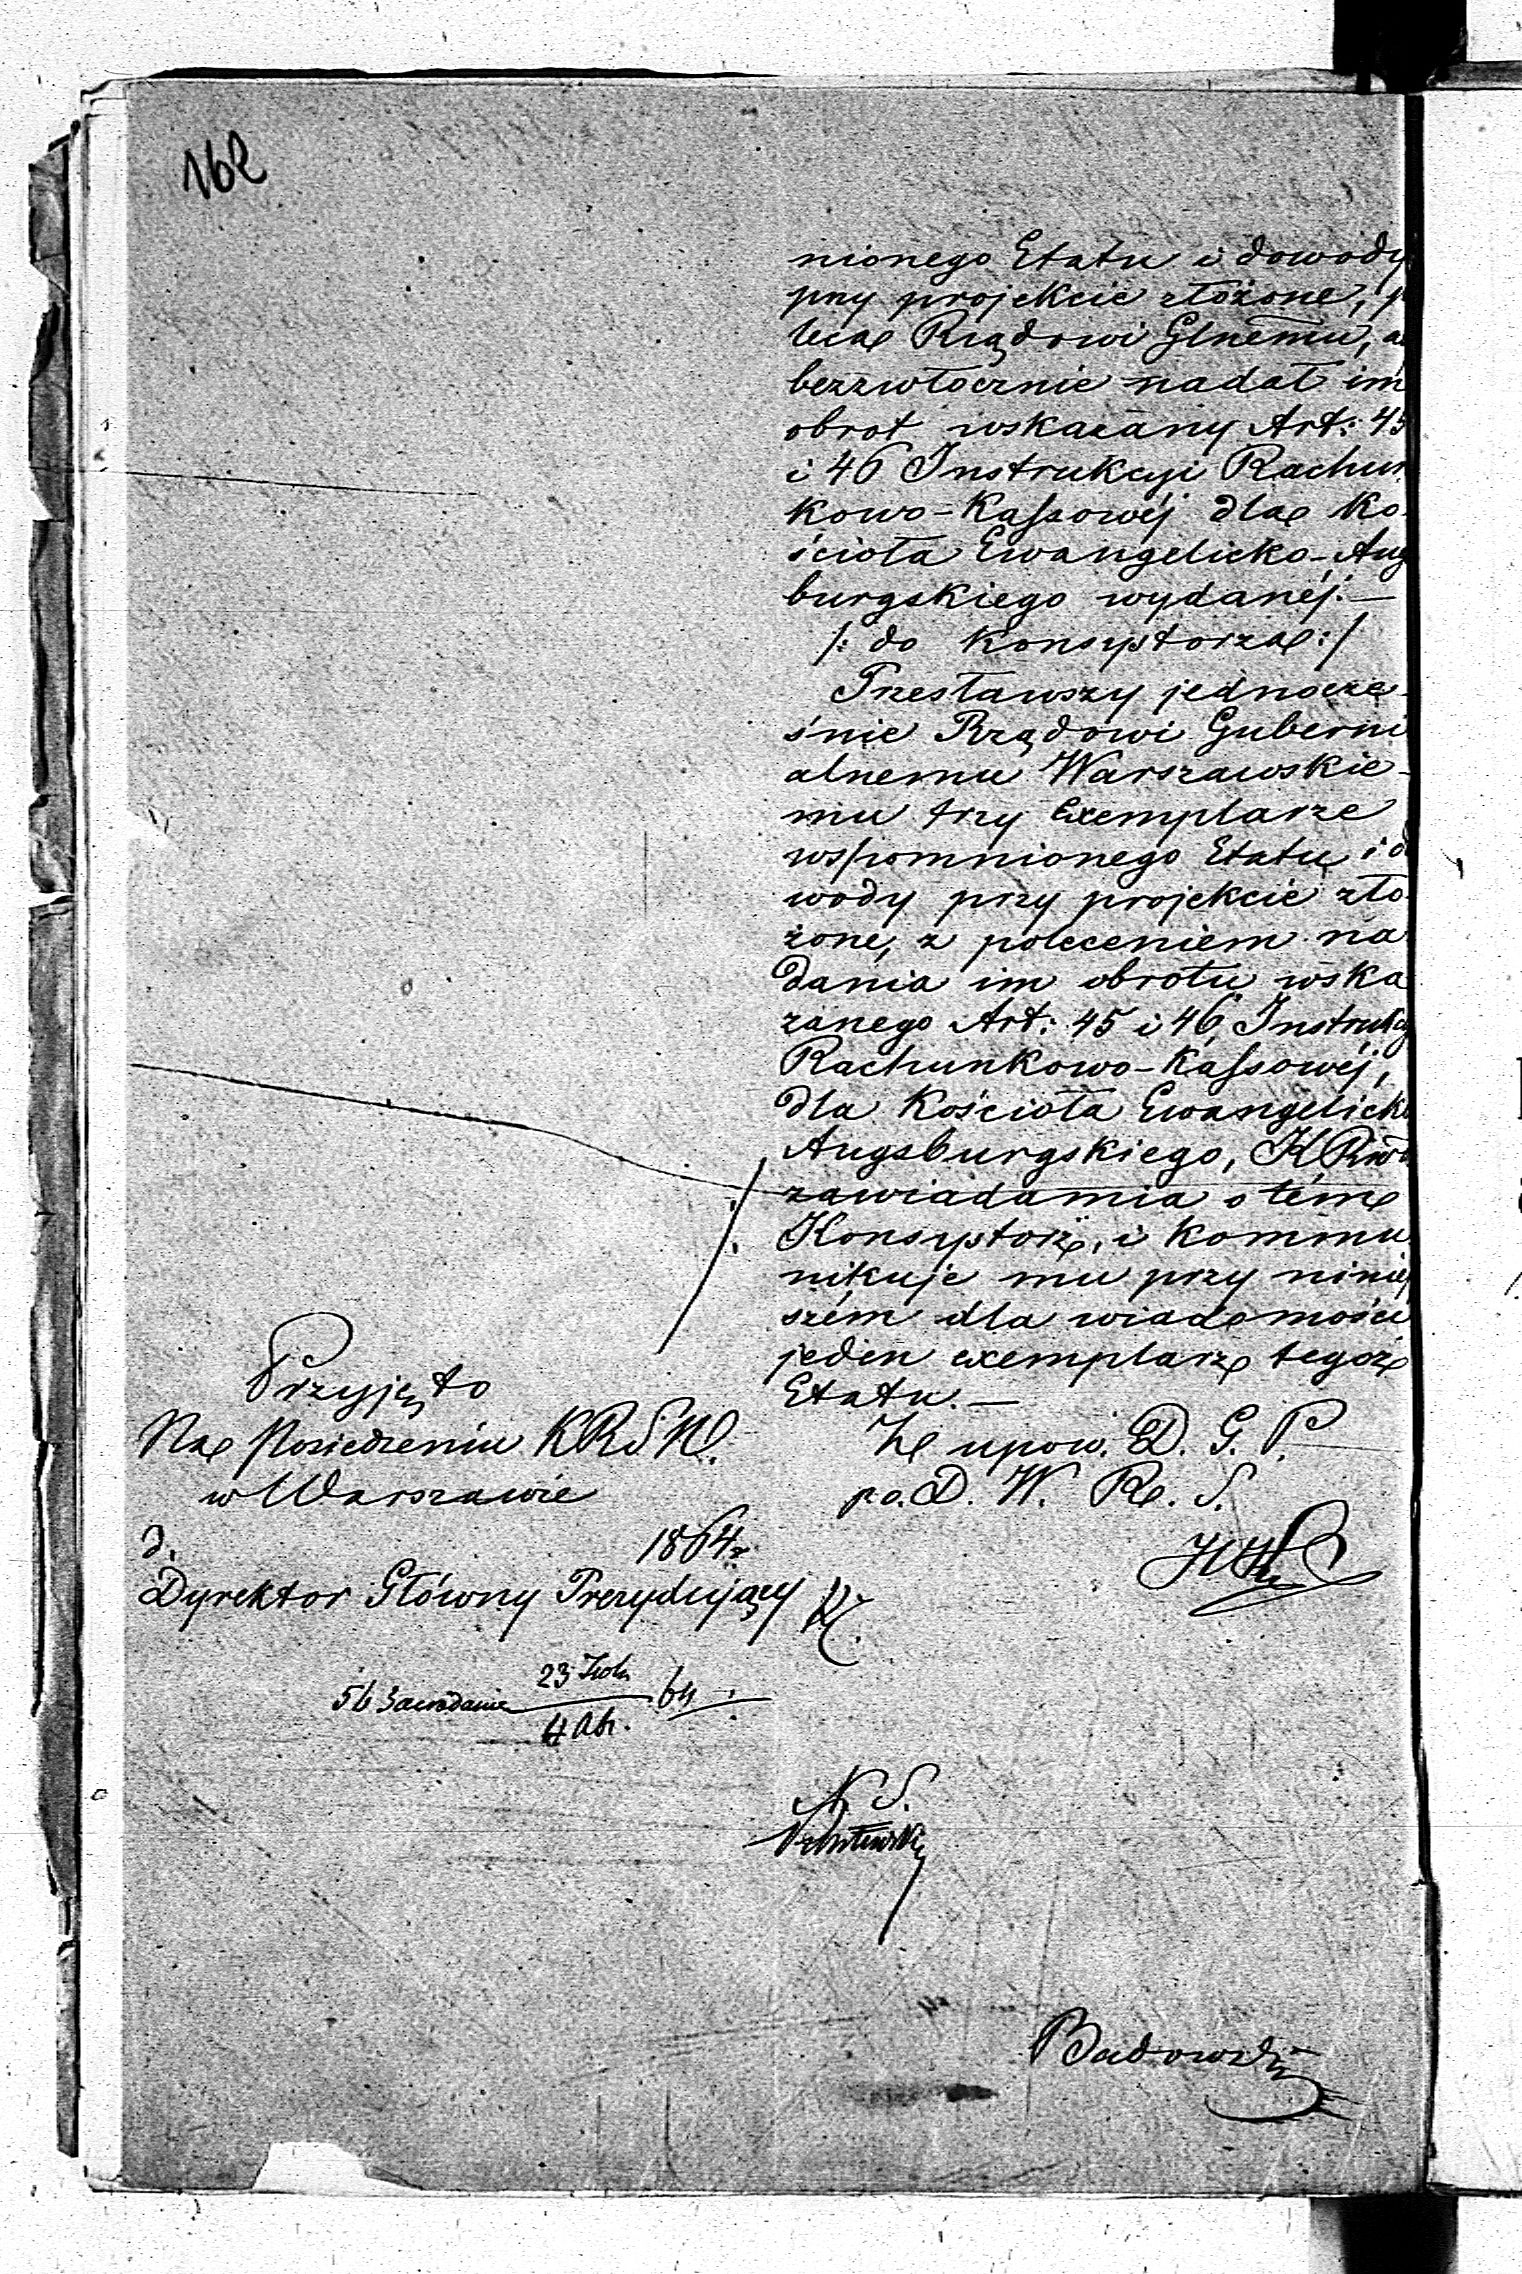 162
nionego Etatu i dowody
przy projekcie złożone, p
leca Rządowi Glnemu, a
bezzwłocznie nadał im
obrot wskazany Art: 45
i 46 Instrukcyi Rachun
kowo-Kassowéj dla Ko-
ścioła Ewangelicko-Aug
burgskiego wydanéj.—
/: do Konsystorza :/
Przesławszy jednocze-
śnie Rządowi Guberni
alnemu Warszawskie-
mu trzy exemplarze
wspomnionego Etatu i do
wody przy projekcie zło-
żone, z poleceniem na
dania im obrotu wska
zanego Art: 45 i 46 Instrukcy
Rachunkowo-Kassowéj,
dla Kościoła Ewangelicko
Augsburgskiego, K R
zawiadamia o tém
Konsystorz, i kommu
nikuje mu przy niniej
szém dla wiadomości
jeden exemplarz tegoż
Etatu.—
Z upow. D. G. P.
po. D. W. R. S.
Przyjęto
Na Posiedzeniu KRSW.
w Warszawie
d. 1864 r.
Dyrektor Główny Prezydujący
56 23 64
4
N. S.
Badowski